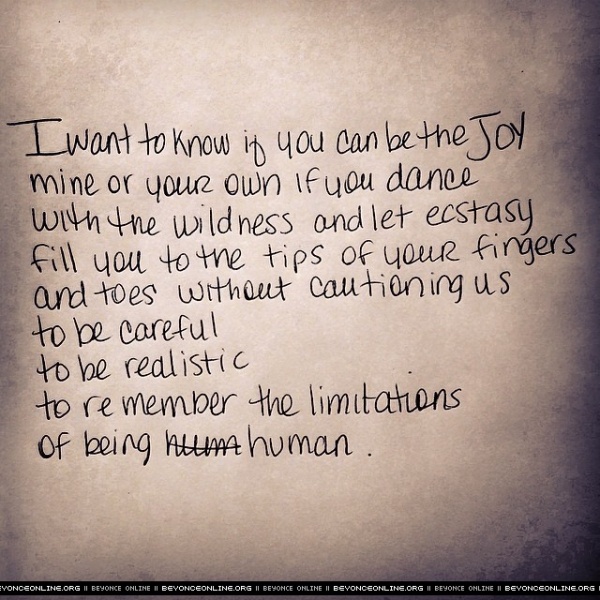 I want to know if you can be the Joy
mine or your own if you dance
with the wildness and let ecstasy
fill you to the tips of your fingers
and toes without cautioning us
to be careful
to be realistic
to remember the limitations
of being human .
BEYONCEONLINE.ORG || BEYONCE ONLINE || BEYONCEONLINE.ORG || BEYONCE ONLINE || BEYONCEONLINE.ORG || BEYONCE ONLINE || BEYONCEONLINE.ORG